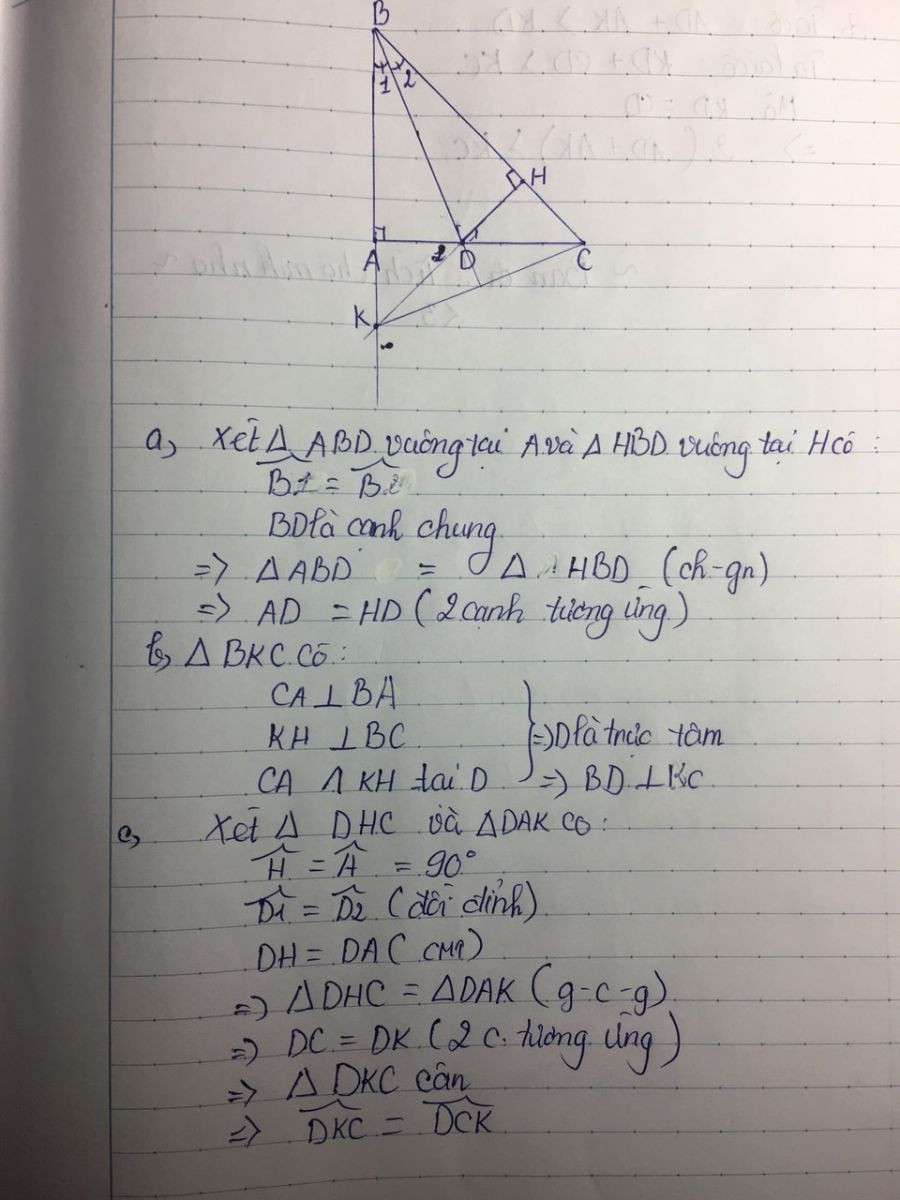 B
1 2
H
A 2 D 1 C
K
a, Xét Δ ABD vuông tại A và Δ HBD vuông tại H có :
B1 = B2
BD là cạnh chung
=> Δ ABD = Δ HBD (ch-gn)
=> AD = HD ( 2 cạnh tương ứng )
b, Δ BKC có :
CA ⊥ BA
KH ⊥ BC => D là trực tâm
CA ∩ KH tại D => BD ⊥ KC
c, Xét Δ DHC và ΔDAK có :
H = A = 90°
D1 = D2 (đối đỉnh)
DH = DA ( cmt)
=> ΔDHC = ΔDAK ( g-c-g)
=> DC = DK ( 2 c. tương ứng )
=> Δ DKC cân
=> DKC = DCK